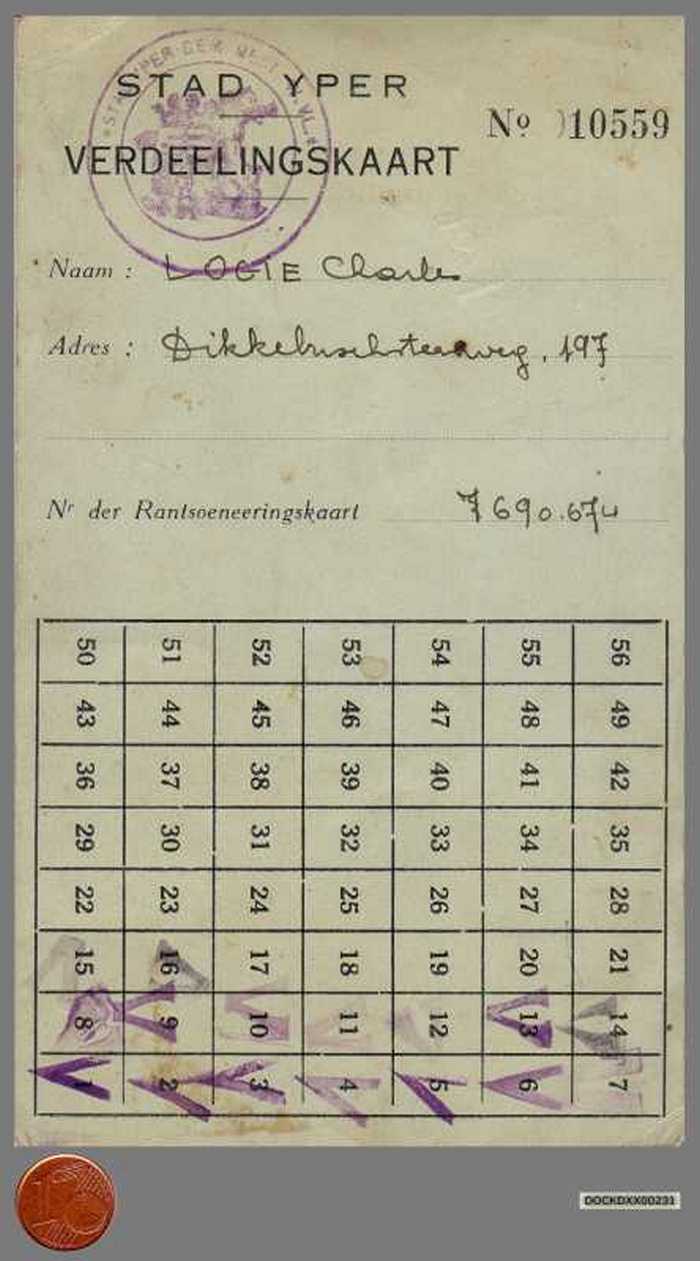 STAD YPER
Nº 10559
VERDEELINGSKAART
Naam : LOGIE Charles
Adres : Dikkebuschsteenweg, 197
Nr der Rantsoeneeringskaart 7690.674
50 51 52 53 54 55 56
43 44 45 46 47 48 49
36 37 38 39 40 41 42
29 30 31 32 33 34 35
22 23 24 25 26 27 28
15 16 17 18 19 20 21
8 9 10 11 12 13 14
1 2 3 4 5 6 7
1
DOCKDXX00231